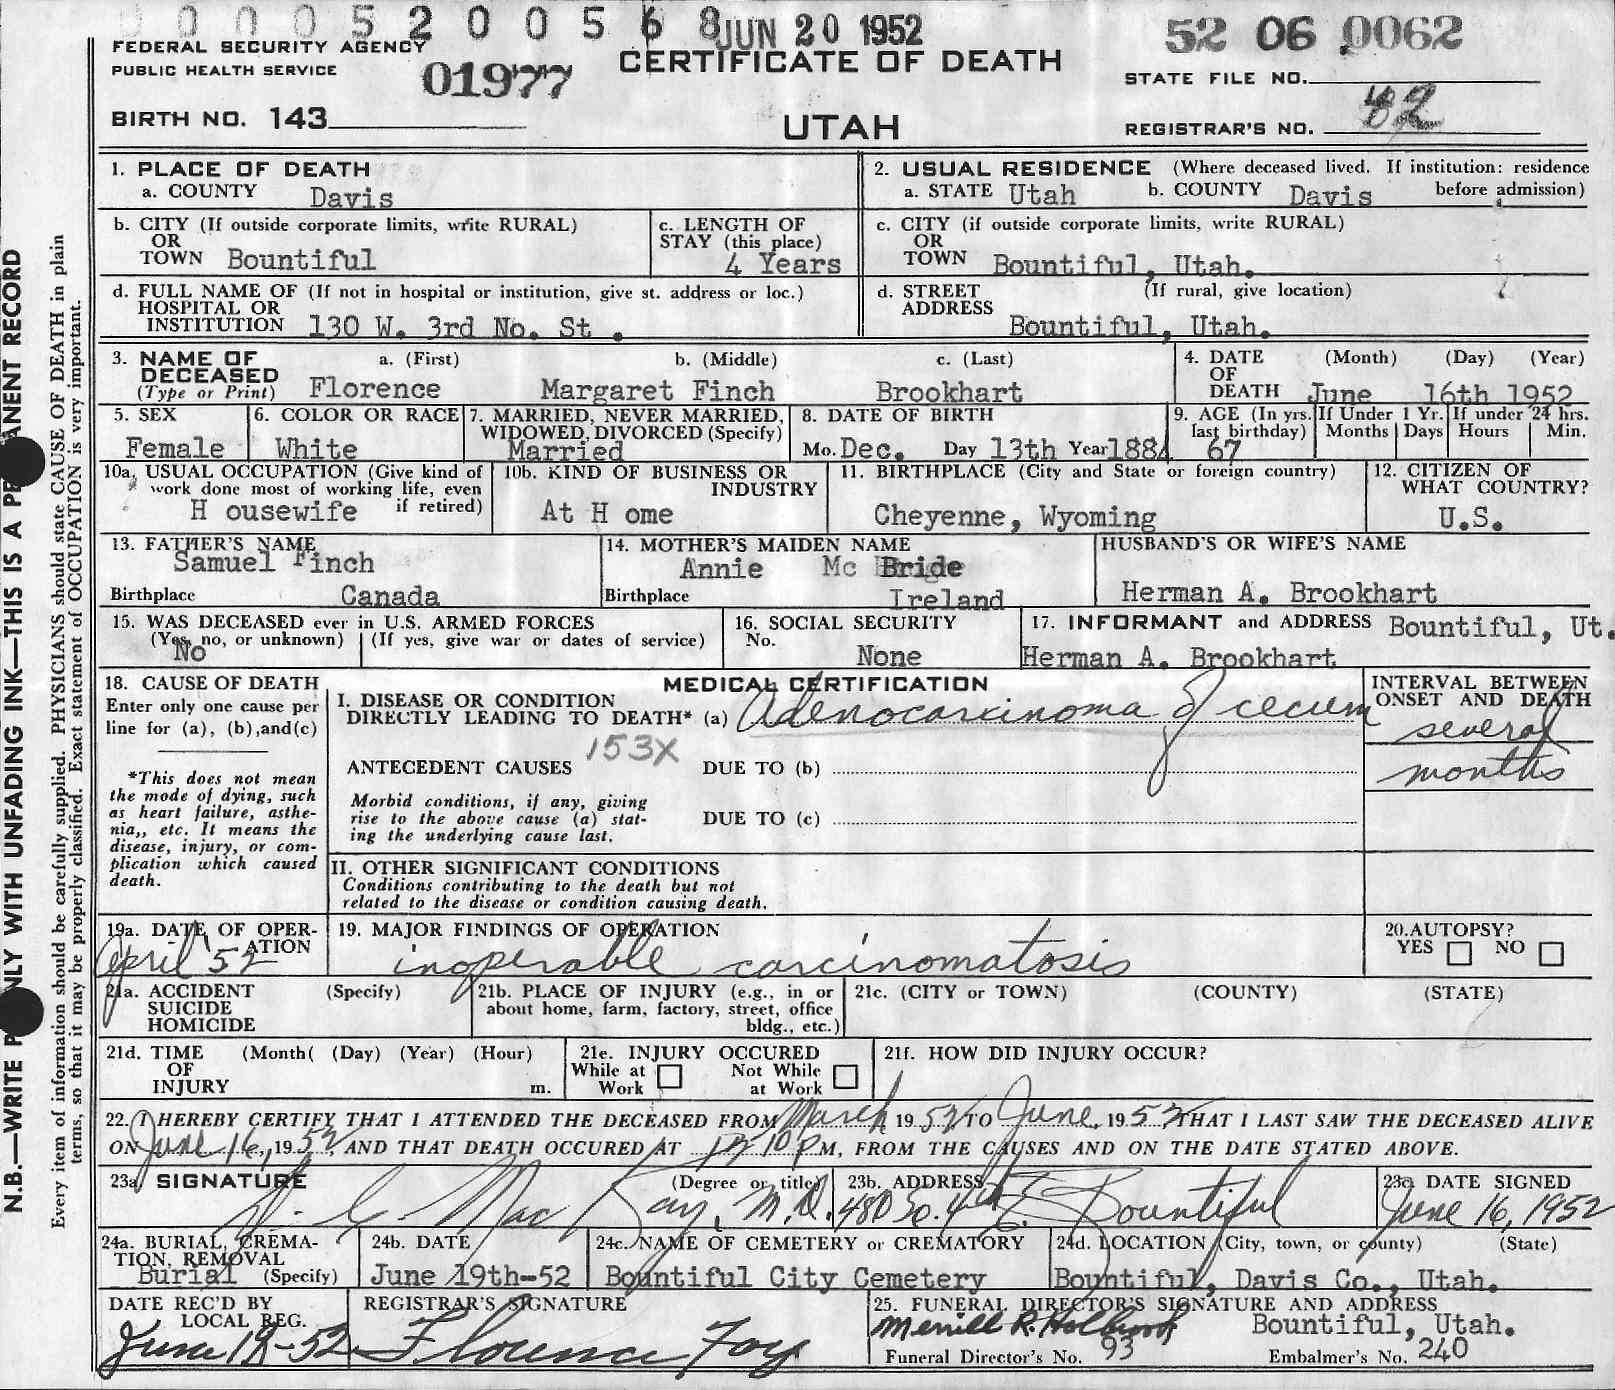 0 0 0 5 2 0 0 5 6 8 JUN 20 1952
52 06 0062
FEDERAL SECURITY AGENCY
PUBLIC HEALTH SERVICE
01977
CERTIFICATE OF DEATH
STATE FILE NO.
BIRTH NO. 143
UTAH
REGISTRAR'S NO.
1. PLACE OF DEATH
a. COUNTY Davis
2. USUAL RESIDENCE (Where deceased lived. If institution: residence
a. STATE Utah b. COUNTY Davis before admission)
b. CITY (If outside corporate limits, write RURAL)
OR
TOWN Bountiful
c. LENGTH OF
STAY (this place)
4 Years
c. CITY (if outside corporate limits, write RURAL)
OR
TOWN Bountiful, Utah.
d. FULL NAME OF (If not in hospital or institution, give st. address or loc.)
HOSPITAL OR
INSTITUTION 130 W. 3rd No. St .
d. STREET (If rural, give location)
ADDRESS
Bountiful, Utah.
3. NAME OF a. (First) b. (Middle) c. (Last)
DECEASED
(Type or Print) Florence Margaret Finch Brookhart
4. DATE (Month) (Day) (Year)
OF
DEATH June 16th 1952
5. SEX
Female
6. COLOR OR RACE
White
7. MARRIED, NEVER MARRIED,
WIDOWED, DIVORCED (Specify)
Married
8. DATE OF BIRTH
Mo. Dec. Day 13th Year 1884
9. AGE (In yrs. If Under 1 Yr. If under 24 hrs.
last birthday) Months Days Hours Min.
67
10a, USUAL OCCUPATION (Give kind of
work done most of working life, even
H ousewife if retired)
10b. KIND OF BUSINESS OR
INDUSTRY
At H ome
11. BIRTHPLACE (City and State or foreign country)
Cheyenne, Wyoming
12. CITIZEN OF
WHAT COUNTRY?
U.S.
13. FATHER'S NAME
Samuel Finch
Birthplace Canada
14. MOTHER'S MAIDEN NAME
Annie Mc Bride
Birthplace Ireland
HUSBAND'S OR WIFE'S NAME
Herman A. Brookhart
15. WAS DECEASED ever in U.S. ARMED FORCES
(Yes, no, or unknown) (If yes, give war or dates of service)
No
16. SOCIAL SECURITY
No.
None
17. INFORMANT and ADDRESS Bountiful, Ut.
Herman A. Brookhart
18. CAUSE OF DEATH
Enter only one cause per
line for (a), (b),and(c)
*This does not mean
the mode of dying, such
as heart failure, asthe-
nia,, etc. It means the
disease, injury, or com-
plication which caused
death.
MEDICAL CERTIFICATION
I. DISEASE OR CONDITION
DIRECTLY LEADING TO DEATH* (a) Adenocarcinoma of cecum
153X
ANTECEDENT CAUSES DUE TO (b)
Morbid conditions, if any, giving
rise to the above cause (a) stat-
ing the underlying cause last.
DUE TO (c)
II. OTHER SIGNIFICANT CONDITIONS
Conditions contributing to the death but not
related to the disease or condition causing death.
INTERVAL BETWEEN
ONSET AND DEATH
several
months
19a. DATE OF OPER-
ATION
April '52
19. MAJOR FINDINGS OF OPERATION
inoperable carcinomatosis
20.AUTOPSY?
YES NO
21a. ACCIDENT (Specify)
SUICIDE
HOMICIDE
21b. PLACE OF INJURY (e.g., in or
about home, farm, factory, street, office
bldg., etc.)
21c. (CITY or TOWN) (COUNTY) (STATE)
21d. TIME (Month( (Day) (Year) (Hour)
OF
INJURY m.
21e. INJURY OCCURED
While at Not While
Work at Work
21f. HOW DID INJURY OCCUR?
22. I HEREBY CERTIFY THAT I ATTENDED THE DECEASED FROM March 1952 TO June, 1952 THAT I LAST SAW THE DECEASED ALIVE
ON June 16, 1952, AND THAT DEATH OCCURED AT 10 P M, FROM THE CAUSES AND ON THE DATE STATED ABOVE.
23a SIGNATURE (Degree or title)
MacKay, M.D.
23b. ADDRESS
480 So. 4th E. Bountiful
23a DATE SIGNED
June 16, 1952
24a. BURIAL, CREMA-
TION, REMOVAL
Burial (Specify)
24b. DATE
June 19th-52
24c. NAME OF CEMETERY or CREMATORY
Bountiful City Cemetery
24d. LOCATION (City, town, or county) (State)
Bountiful, Davis Co., Utah.
DATE REC'D BY
LOCAL REG.
June 18-52
REGISTRAR'S SIGNATURE
Florence Foy
25. FUNERAL DIRECTOR'S SIGNATURE AND ADDRESS
Merrill R. Holbrook Bountiful, Utah.
Funeral Director's No. 93 Embalmer's No. 240
N.B.—WRITE PLAINLY WITH UNFADING INK—THIS IS A PERMANENT RECORD
Every item of information should be carefully supplied. PHYSICIANS should state CAUSE OF DEATH in plain
terms, so that it may be properly classified. Exact statement of OCCUPATION is very important.